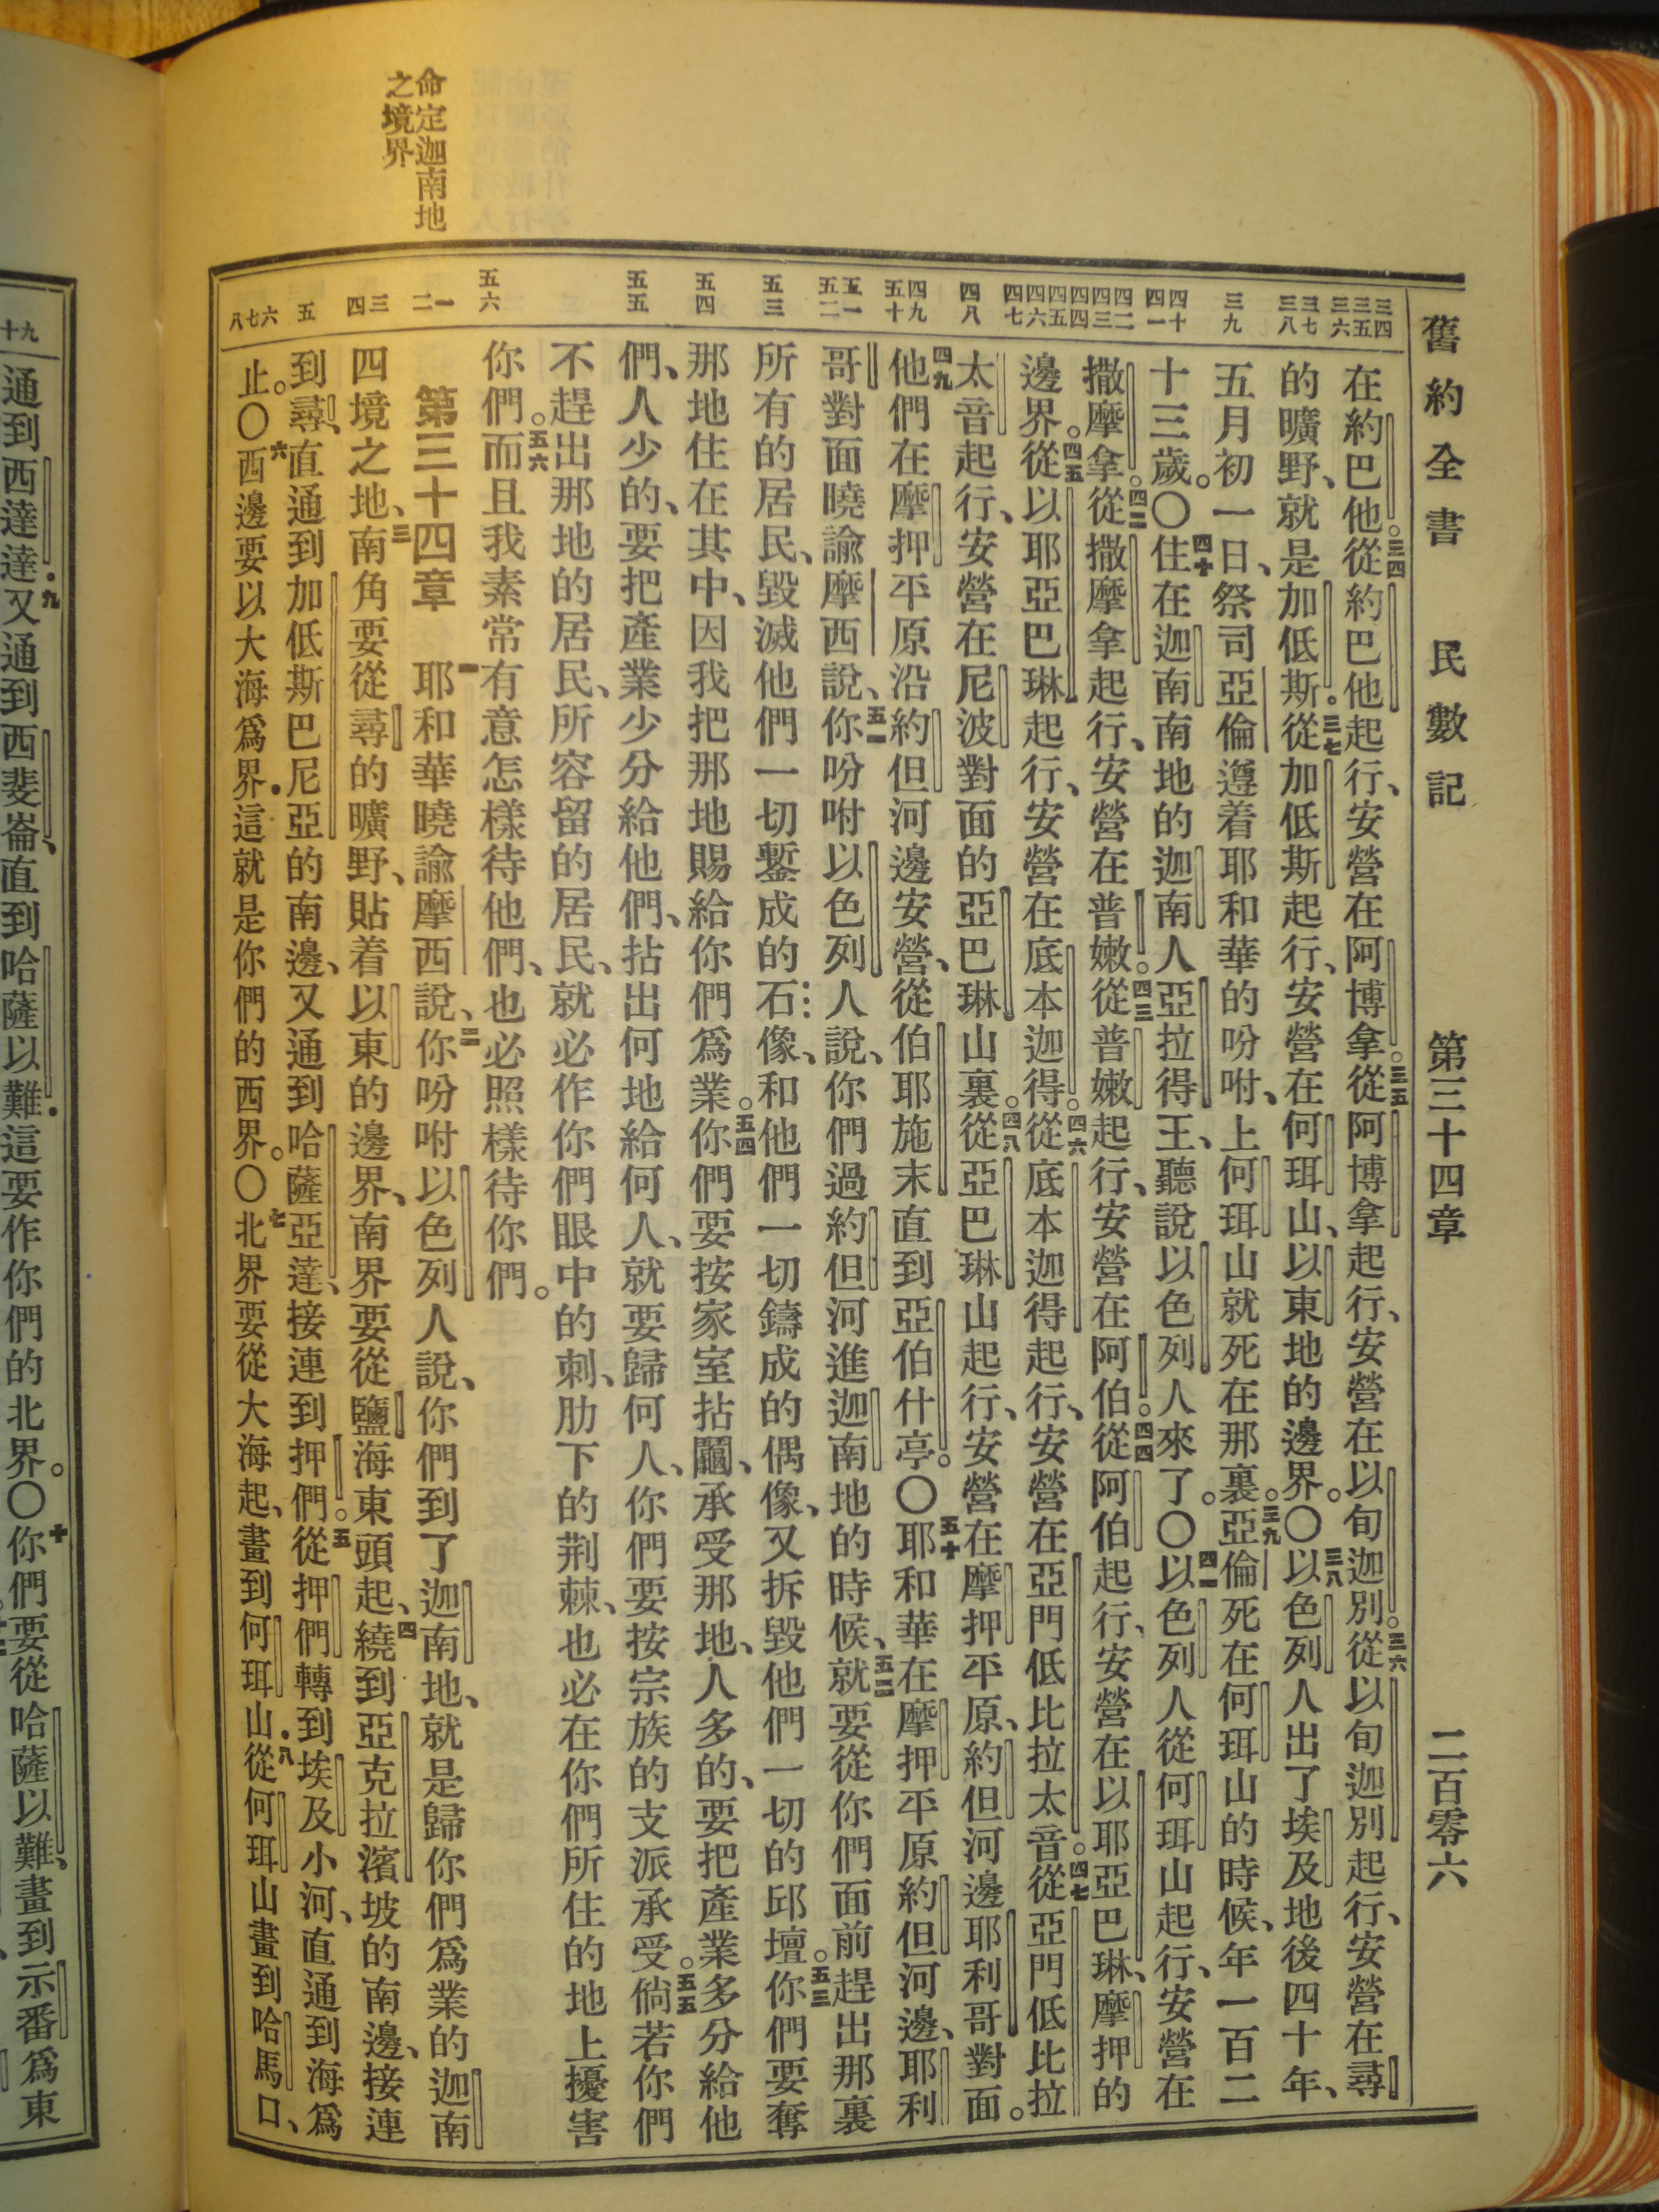 舊約全書 民數記 第三十四章 二百零六
三四 三五 三六
在約巴他。三四從約巴他起行、安營在阿博拿。三五從阿博拿起行、安營在以旬迦別。三六從以旬迦別起行、安營在尋
三七 三八
的曠野、就是加低斯。三七從加低斯起行、安營在何珥山、以東地的邊界。〇三八以色列人出了埃及地後四十年、
三九
五月初一日、祭司亞倫遵着耶和華的吩咐、上何珥山就死在那裏。三九亞倫死在何珥山的時候、年一百二
四十 四一
十三歲。〇四十住在迦南南地的迦南人亞拉得王、聽說以色列人來了。〇四一以色列人從何珥山起行、安營在
四二 四三 四四
撒摩拿。四二從撒摩拿起行、安營在普嫩。四三從普嫩起行、安營在阿伯。四四從阿伯起行、安營在以耶亞巴琳、摩押的
四五 四六 四七
邊界。四五從以耶亞巴琳起行、安營在底本迦得。四六從底本迦得起行、安營在亞門低比拉太音。四七從亞門低比拉
四八
太音起行、安營在尼波對面的亞巴琳山裏。四八從亞巴琳山起行、安營在摩押平原、約但河邊耶利哥對面。
四九 五十
四九他們在摩押平原沿約但河邊安營、從伯耶施末直到亞伯什亭。〇五十耶和華在摩押平原約但河邊、耶利
五一 五二
哥對面曉諭摩西說、五一你吩咐以色列人說、你們過約但河進迦南地的時候、五二就要從你們面前趕出那裏
五三
所有的居民、毀滅他們一切鏨成的石像、和他們一切鑄成的偶像、又拆毀他們一切的邱壇。五三你們要奪
五四
那地住在其中、因我把那地賜給你們爲業。五四你們要按家室拈鬮、承受那地、人多的、要把產業多分給他
五五
們、人少的、要把產業少分給他們、拈出何地給何人、就要歸何人、你們要按宗族的支派承受。五五倘若你們
不趕出那地的居民、所容留的居民、就必作你們眼中的刺、肋下的荆棘、也必在你們所住的地上擾害
五六
你們。五六而且我素常有意怎樣待他們、也必照樣待你們。
命定迦南地
之境界
一 二
第三十四章 一耶和華曉諭摩西說、二你吩咐以色列人說、你們到了迦南地、就是歸你們爲業的迦南
三 四
四境之地、三南角要從尋的曠野、貼着以東的邊界、南界要從鹽海東頭起、四繞到亞克拉濱坡的南邊、接連
五
到尋、直通到加低斯巴尼亞的南邊、又通到哈薩亞達、接連到押們。五從押們轉到埃及小河、直通到海爲
六 七 八
止。〇六西邊要以大海爲界．這就是你們的西界。〇七北界要從大海起、畫到何珥山．八從何珥山畫到哈馬口、
九 十
通到西達達．九又通到西斐崙、直到哈薩以難．這要作你們的北界。〇十你們要從哈薩以難、畫到示番爲東